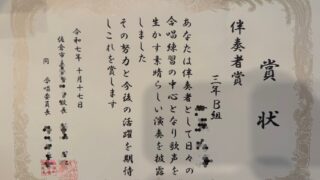 賞状
伴奏者賞
三年B組
あなたは伴奏者として日々の
合唱練習の中心となり歌声を
生かす素晴らしい演奏を披露
しました
その努力と今後の活躍を期待
しこれを賞します
令和七年十月十七日
佐倉市
同 合唱委員長